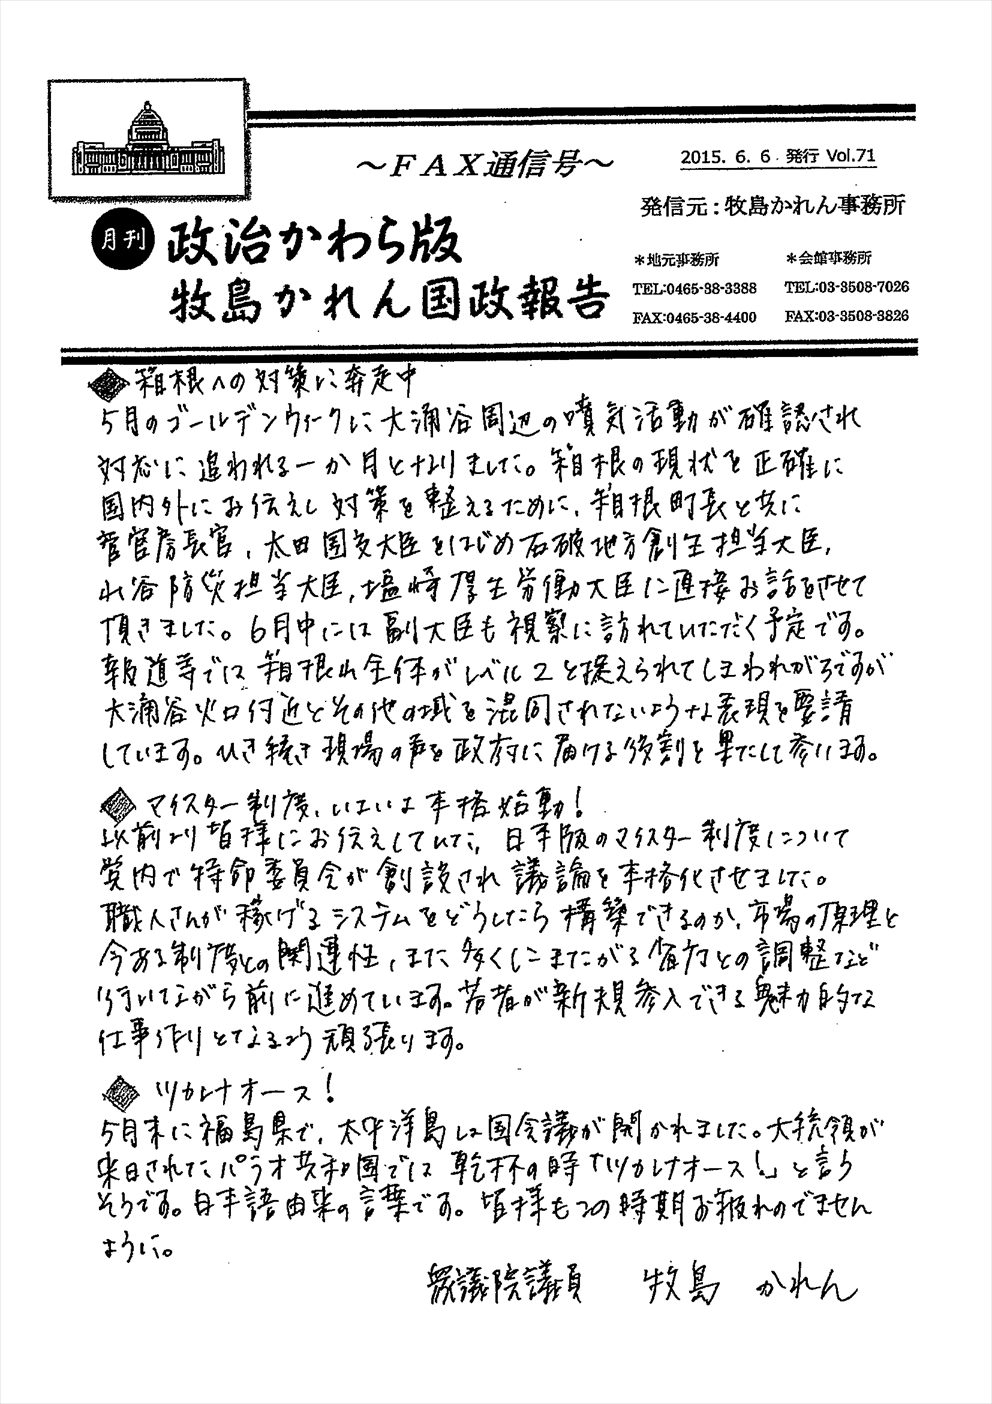 ～ＦＡＸ通信号～
2015. 6. 6 発行 Vol.71
発信元：牧島かれん事務所
月刊
政治かわら版
牧島かれん国政報告
＊地元事務所
TEL:0465-38-3388
FAX:0465-38-4400
＊会館事務所
TEL:03-3508-7026
FAX:03-3508-3826
◆箱根への対策に奔走中
5月のゴールデンウィークに大涌谷周辺の噴気活動が確認され
対応に追われる一か月となりました。箱根の現状を正確に
国内外にお伝えし対策を整えるために、箱根町長と共に
菅官房長官、太田国交大臣をはじめ石破地方創生担当大臣、
山谷防災担当大臣、塩崎厚生労働大臣に直接お話をさせて
頂きました。6月中には副大臣も視察に訪れていただく予定です。
報道等では箱根山全体がレベル2と捉えられてしまわれがちですが
大涌谷火口付近とその他の域を混同されないような表現を要請
しています。ひき続き現場の声を政府に届ける役割を果たして参ります。
◆マイスター制度、いよいよ本格始動！
以前より皆様にお伝えしていた、日本版のマイスター制度について
党内で特命委員会が創設され議論を本格化させました。
職人さんが稼げるシステムをどうしたら構築できるのか、市場の原理と
今ある制度との関連性、また多くにまたがる省庁との調整など
行いながら前に進めています。若者が新規参入できる魅力的な
仕事作りとなるよう頑張ります。
◆ツカレナオース！
5月末に福島県で、太平洋島しょ国会議が開かれました。大統領が
来日されたパラオ共和国では乾杯の時「ツカレナオース！」と言う
そうです。日本語由来の言葉です。皆様もこの時期お疲れのでません
ように。
衆議院議員 牧島 かれん